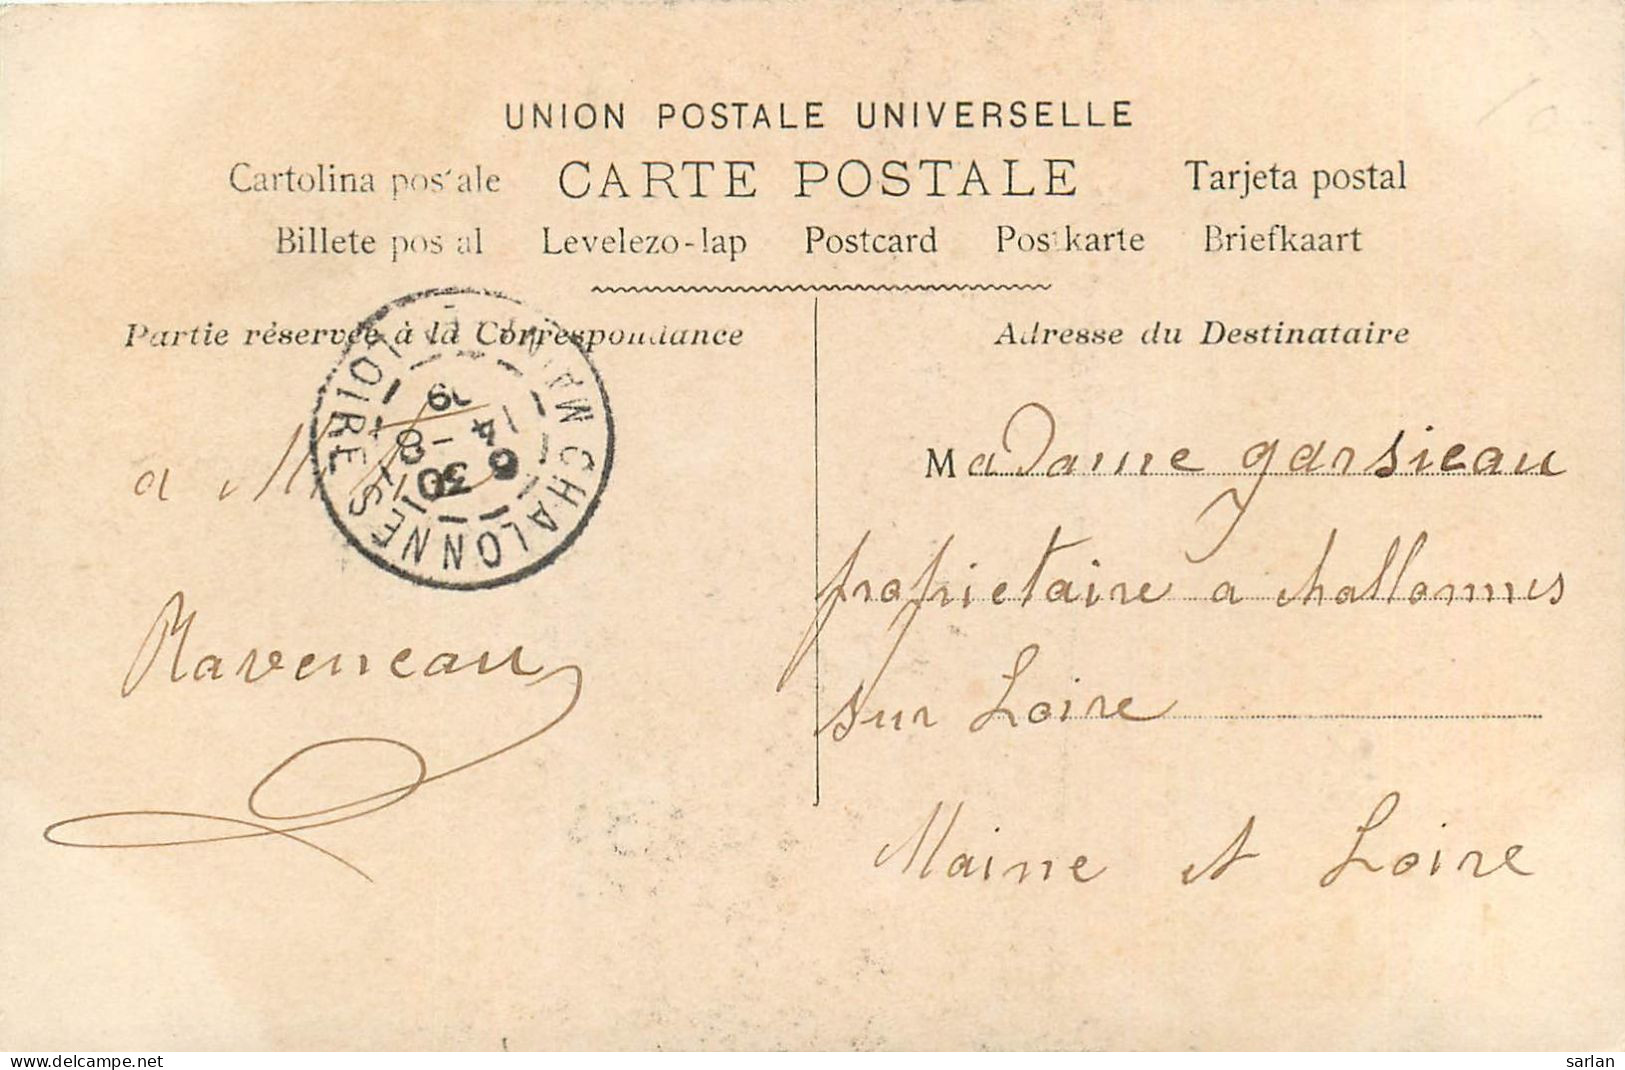 UNION POSTALE UNIVERSELLE
Cartolina postale CARTE POSTALE Tarjeta postal
Billete postal Levelezo-lap Postcard Postkarte Briefkaart
Partie réservée à la Correspondance
Adresse du Destinataire
CHALONNES MAINE ET LOIRE
6 30
14 - 8
a
Raveneau
Madame garsieau
propriétaire a challonnes
sur Loire
Maine et Loire
delcampe.net
sarlan